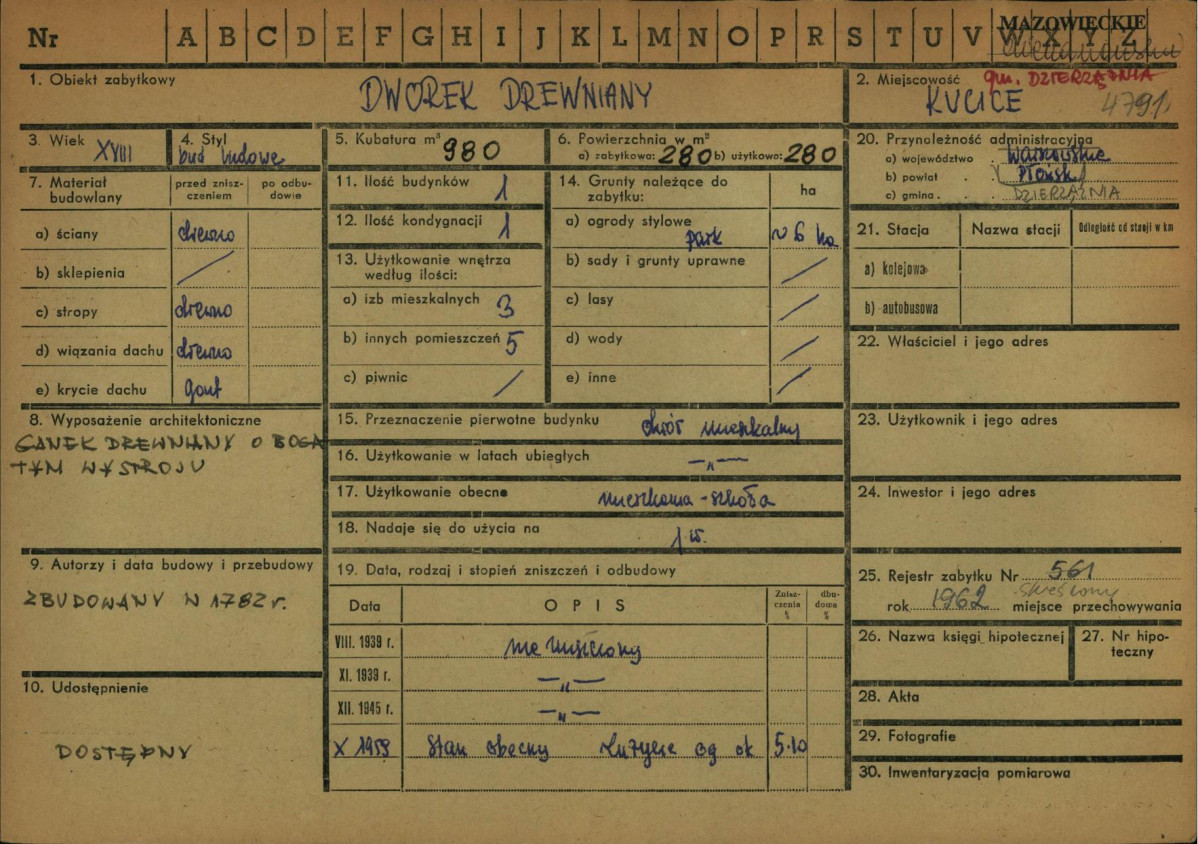 Nr A B C D E F G H I J K L M N O P R S T U V W X Y Z
MAZOWIECKIE
1. Obiekt zabytkowy
DWOREK DREWNIANY
2. Miejscowość gm. DZIERZĄŻNIA
KUCICE 4791
3. Wiek XVIII
4. Styl bud ludowe
5. Kubatura m³ 980
6. Powierzchnia w m²
a) zabytkowa: 280 b) użytkowa: 280
20. Przynależność administracyjna
a) województwo Warszawskie
b) powiat Płońsk
c) gmina DZIERZĄŻNIA
7. Materiał budowlany
przed zniszczeniem
po odbudowie
a) ściany drewno
b) sklepienia /
c) stropy drewno
d) wiązania dachu drewno
e) krycie dachu gont
11. Ilość budynków 1
12. Ilość kondygnacji 1
13. Użytkowanie wnętrza
według ilości:
a) izb mieszkalnych 3
b) innych pomieszczeń 5
c) piwnic /
14. Grunty należące do
zabytku:
ha
a) ogrody stylowe
park ~ 6 ha
b) sady i grunty uprawne /
c) lasy /
d) wody /
e) inne /
21. Stacja Nazwa stacji Odległość od stacji w km
a) kolejowa
b) autobusowa
22. Właściciel i jego adres
8. Wyposażenie architektoniczne
GANEK DREWNIANY O BOGA
TYM WYSTROJU
15. Przeznaczenie pierwotne budynku dwór mieszkalny
16. Użytkowanie w latach ubiegłych —„—
17. Użytkowanie obecne mieszkania - szkoła
18. Nadaje się do użycia na
23. Użytkownik i jego adres
24. Inwestor i jego adres
9. Autorzy i data budowy i przebudowy
ZBUDOWANY W 1782 r.
10. Udostępnienie
DOSTĘPNY
19. Data, rodzaj i stopień zniszczeń i odbudowy
Data OPIS Zniszczenia % dbudowa %
VIII. 1939 r. nie zniszczony
XI. 1939 r. —„—
XII. 1945 r. —„—
X 1959 Stan obecny Zużycie og ok 5-10
25. Rejestr zabytku Nr 561
skreślony
rok 1962 miejsce przechowywania
26. Nazwa księgi hipotecznej
27. Nr hipoteczny
28. Akta
29. Fotografie
30. Inwentaryzacja pomiarowa